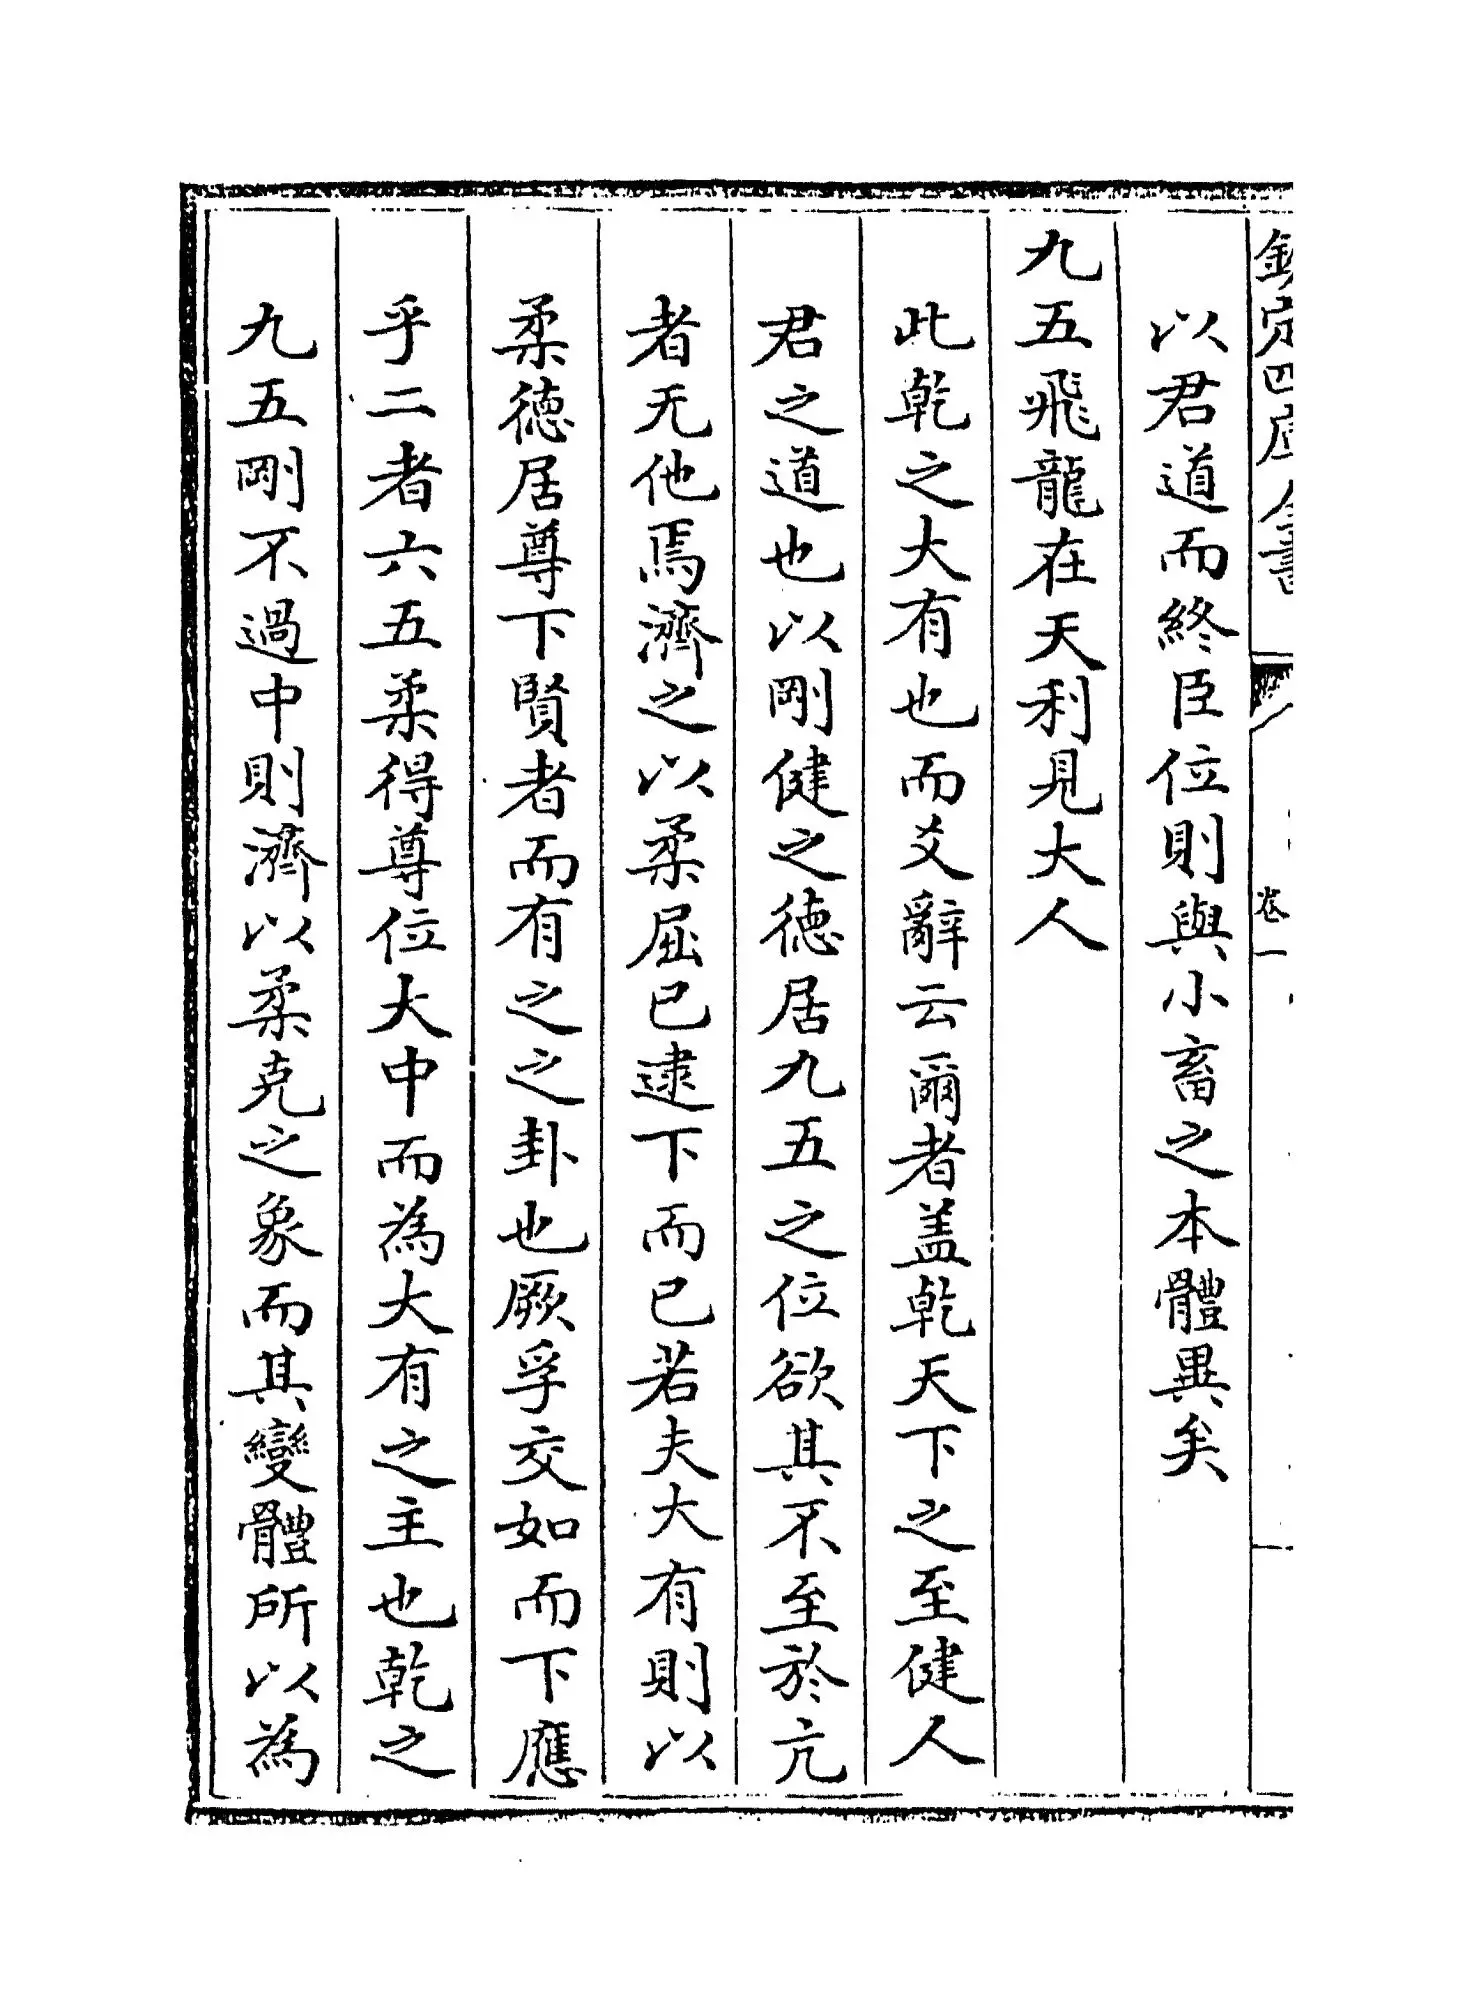 欽定四庫全書
卷一
以君道而終臣位則與小畜之本體異矣
九五飛龍在天利見大人
此乾之大有也而爻辭云爾者蓋乾天下之至健人
君之道也以剛健之德居九五之位欲其不至於亢
者无他焉濟之以柔屈已逮下而已若夫大有則以
柔德居尊下賢者而有之之卦也厥孚交如而下應
乎二者六五柔得尊位大中而為大有之主也乾之
九五剛不過中則濟以柔克之象而其變體所以為